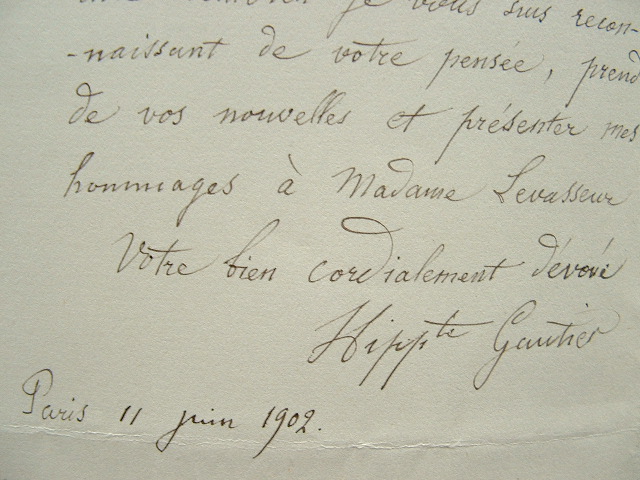 je vous suis recon-
-naissant de votre pensée, prend
de vos nouvelles et présenter mes
hommages à Madame Levasseur
Votre bien cordialement dévoué
Hippte Gautier
Paris 11 juin 1902.